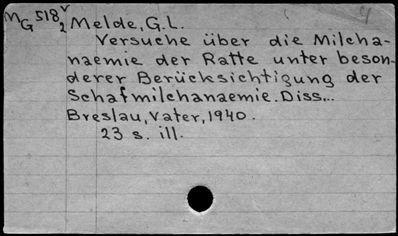 MG 518 v/2 Melde, G.L.
Versuche über die Milcha-
naemie der Ratte unter beson-
derer Berücksichtigung der
Schafmilchanaemie. Diss...
Breslau, Vater, 1940.
23 s. ill.